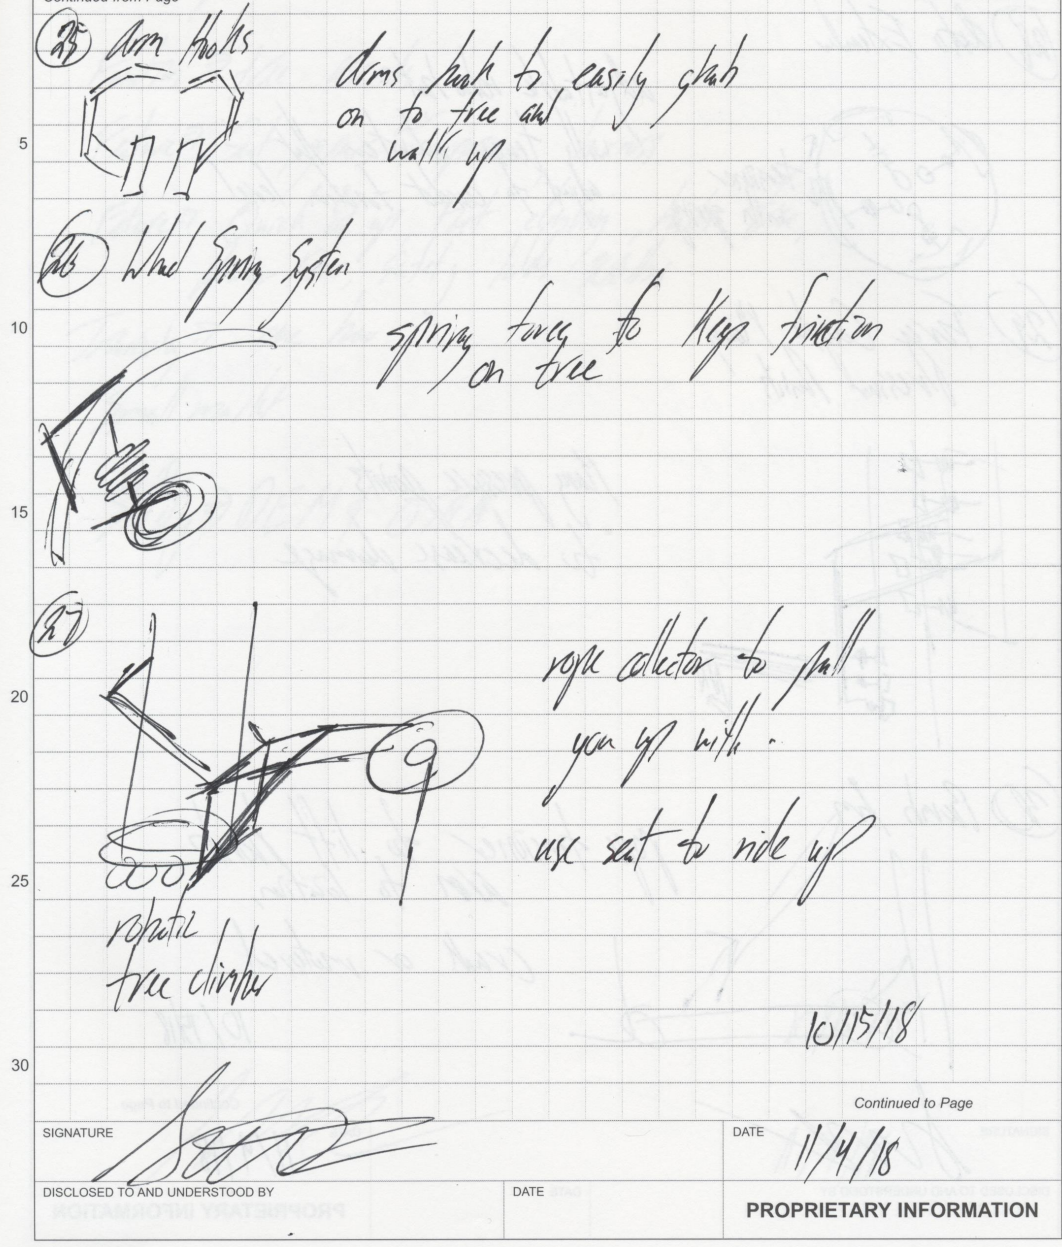 Continued from Page
25 Arm Hooks
Arms hook to easily grab
on to tree and
walk up
5
26 Wheel Spring System
10
spring forces to keep friction
on tree
15
27
20
rope collector to pull
you up with.
use seat to ride up
25
robotic
tree climber
10/15/18
30
Continued to Page
SIGNATURE
DATE
11/4/18
DISCLOSED TO AND UNDERSTOOD BY
DATE
PROPRIETARY INFORMATION